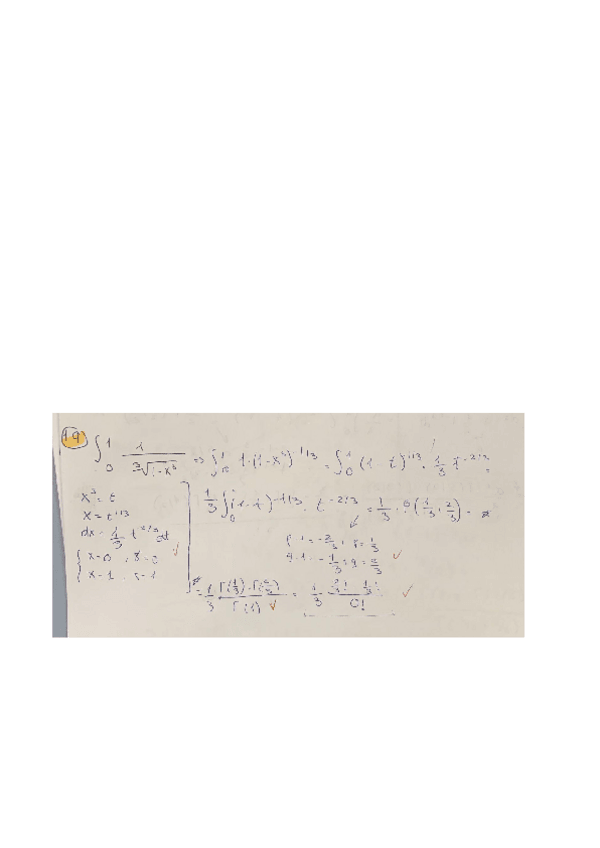 19 ∫₀¹ 1/∛(1-x³) => ∫₀¹ 1·(1-x³)^-1/3 = ∫₀¹ (1-t)^-1/3 · 1/3 t^-2/3
x³ = t
x = t^1/3
dx = 1/3 t^-2/3 dt
{ x=0 , t=0
{ x=1 , t=1
1/3 ∫₀¹ (1-t)^-1/3 · t^-2/3 = 1/3 · β(1/3, 2/3) = *
p-1 = -2/3 , p = 1/3
q-1 = -1/3 , q = 2/3
* = 1/3 Γ(1/3)·Γ(2/3) / Γ(1) = 1/3 · / 0!